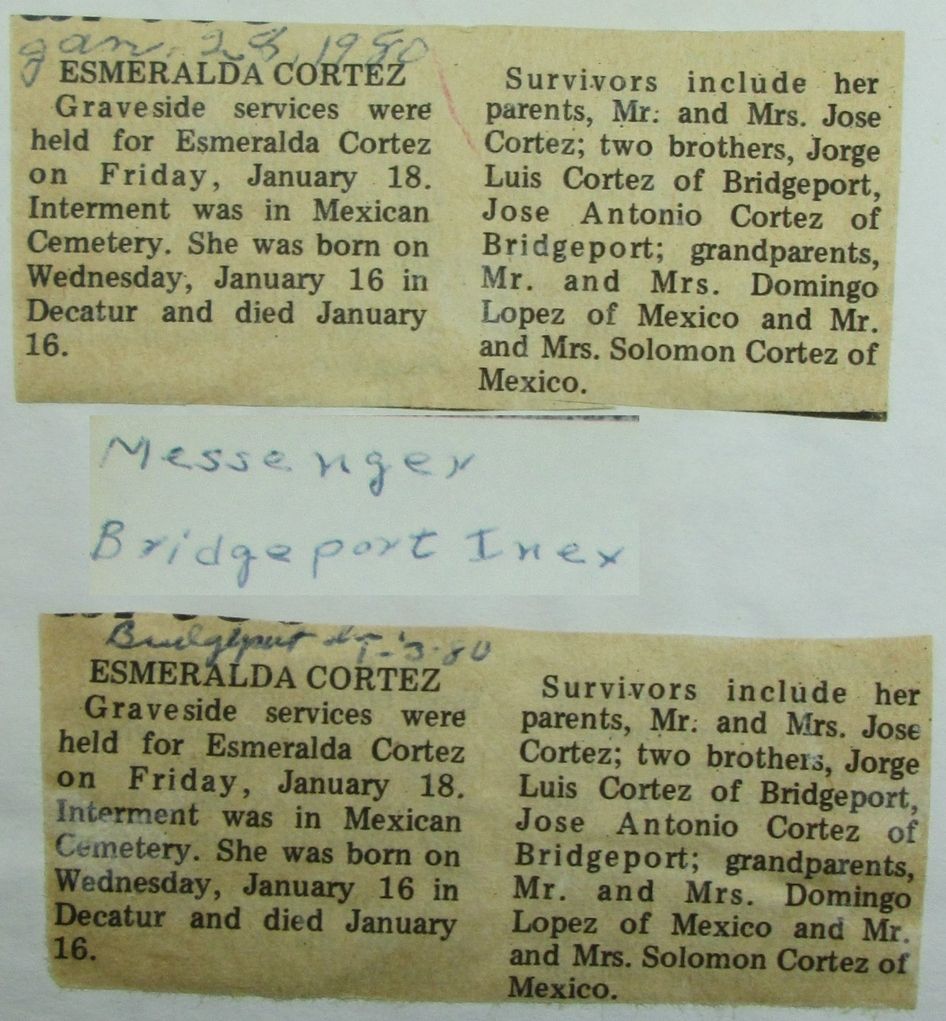 Jan. 28, 1980
ESMERALDA CORTEZ
Graveside services were
held for Esmeralda Cortez
on Friday, January 18.
Interment was in Mexican
Cemetery. She was born on
Wednesday, January 16 in
Decatur and died January
16.
Survivors include her
parents, Mr. and Mrs. Jose
Cortez; two brothers, Jorge
Luis Cortez of Bridgeport,
Jose Antonio Cortez of
Bridgeport; grandparents,
Mr. and Mrs. Domingo
Lopez of Mexico and Mr.
and Mrs. Solomon Cortez of
Mexico.
Messenger
Bridgeport Inex
Bridgeport
ESMERALDA CORTEZ
Graveside services were
held for Esmeralda Cortez
on Friday, January 18.
Interment was in Mexican
Cemetery. She was born on
Wednesday, January 16 in
Decatur and died January
16.
Survivors include her
parents, Mr. and Mrs. Jose
Cortez; two brothers, Jorge
Luis Cortez of Bridgeport,
Jose Antonio Cortez of
Bridgeport; grandparents,
Mr. and Mrs. Domingo
Lopez of Mexico and Mr.
and Mrs. Solomon Cortez of
Mexico.